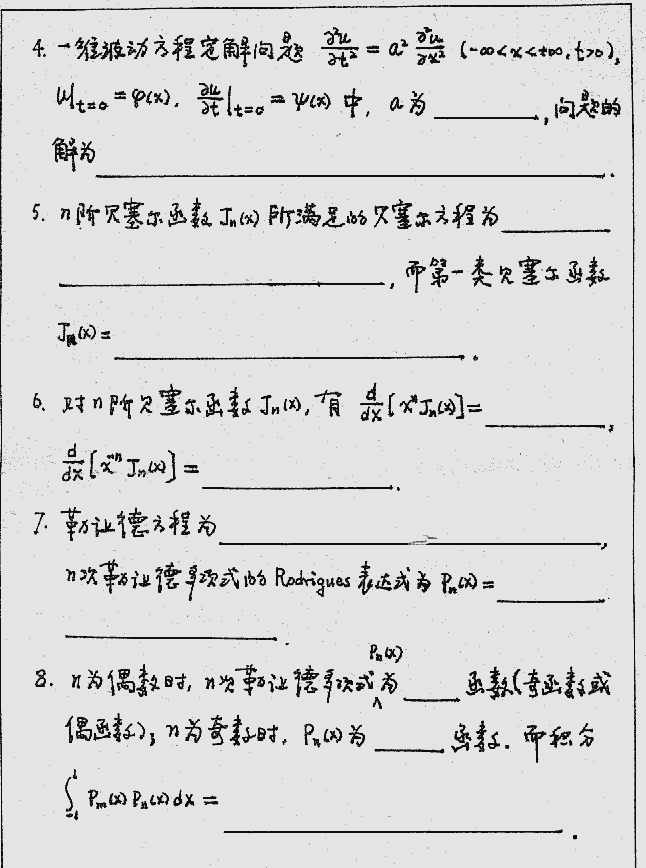 4. 一维波动方程定解问题 ∂²u/∂t² = a² ∂²u/∂x² (-∞<x<+∞, t>0),
u|t=0 = φ(x), ∂u/∂t|t=0 = ψ(x) 中, a为________, 问题的
解为________.
5. n阶贝塞尔函数 Jn(x) 所满足的贝塞尔方程为________
________, 而第一类贝塞尔函数
Jn(x) = ________.
6. 对n阶贝塞尔函数 Jn(x), 有 d/dx[xⁿJn(x)] = ________,
d/dx[x⁻ⁿJn(x)] = ________.
7. 勒让德方程为________,
n次勒让德多项式的 Rodrigues 表达式为 Pn(x) = ________
________.
8. n为偶数时, n次勒让德多项式Pn(x)为____函数(奇函数或
偶函数); n为奇数时, Pn(x)为____函数. 而积分
∫₋₁¹ Pm(x)Pn(x)dx = ________.